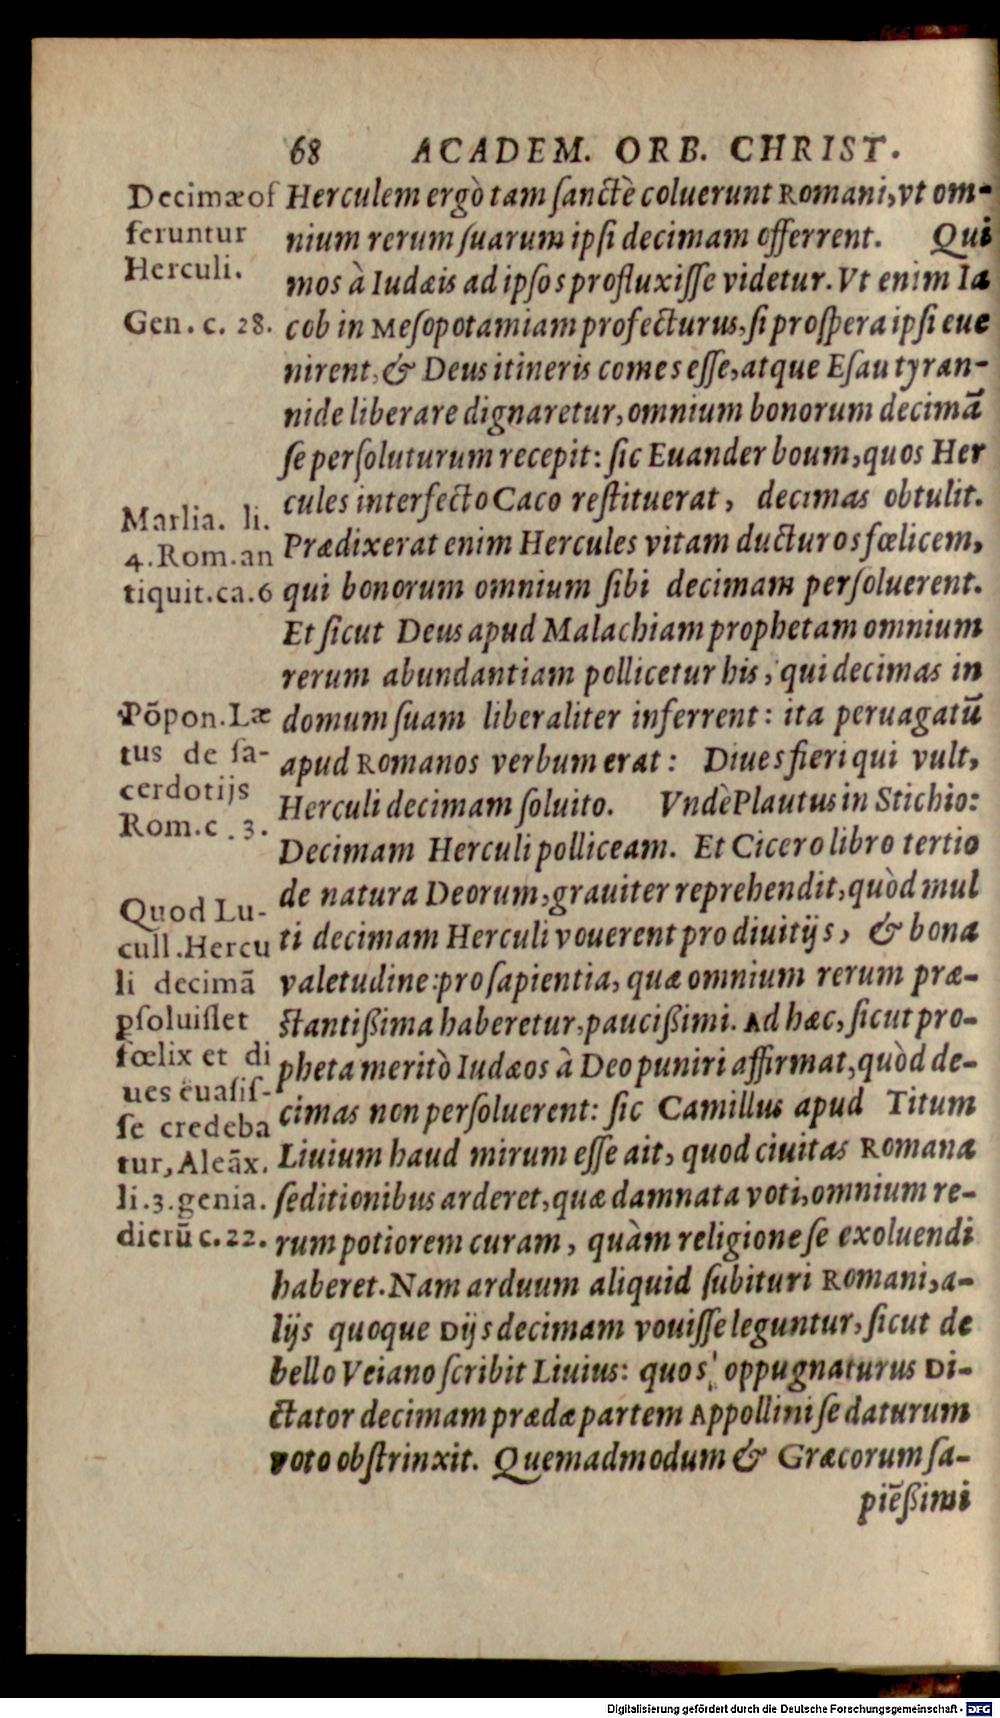 68 ACADEM. ORB. CHRIST.
Decimæ of
feruntur
Herculi.
Gen. c. 28.
Marlia. li.
4. Rom. an
tiquit. ca. 6
Põpon. Læ
tus de ſa-
cerdotijs
Rom. c. 3.
Quod Lu-
cull. Hercu
li decimã
pſoluiſſet
fœlix et di
ues euaſiſ-
ſe credeba
tur, Aleãx.
li. 3. genia.
dierũ c. 22.
Herculem ergò tam ſanctè coluerunt Romani, vt om-
nium rerum ſuarum ipſi decimam offerrent. Qui
mos à Iudæis ad ipſos profluxiſſe videtur. Vt enim Ia
cob in Meſopotamiam profecturus, ſi proſpera ipſi eue
nirent, & Deus itineris comes eſſe, atque Eſau tyran-
nide liberare dignaretur, omnium bonorum decimã
ſe perſoluturum recepit: ſic Euander boum, quos Her
cules interfecto Caco reſtituerat, decimas obtulit.
Prædixerat enim Hercules vitam ducturos fœlicem,
qui bonorum omnium ſibi decimam perſoluerent.
Et ſicut Deus apud Malachiam prophetam omnium
rerum abundantiam pollicetur his, qui decimas in
domum ſuam liberaliter inferrent: ita peruagatũ
apud Romanos verbum erat: Diues fieri qui vult,
Herculi decimam ſoluito. Vndè Plautus in Stichio:
Decimam Herculi polliceam. Et Cicero libro tertio
de natura Deorum, grauiter reprehendit, quòd mul
ti decimam Herculi vouerent pro diuitijs, & bona
valetudine: pro ſapientia, quæ omnium rerum præ-
ſtantißima haberetur, paucißimi. Ad hæc, ſicut pro-
pheta meritò Iudæos à Deo puniri affirmat, quòd de-
cimas non perſoluerent: ſic Camillus apud Titum
Liuium haud mirum eſſe ait, quod ciuitas Romana
ſeditionibus arderet, quæ damnata voti, omnium re-
rum potiorem curam, quàm religione ſe exoluendi
haberet. Nam arduum aliquid ſubituri Romani, a-
lijs quoque Dijs decimam vouiſſe leguntur, ſicut de
bello Veiano ſcribit Liuius: quos oppugnaturus Di-
ctator decimam prædæ partem Appollini ſe daturum
voto obſtrinxit. Quemadmodum & Græcorum ſa-
piẽßimi
Digitalisierung gefördert durch die Deutsche Forschungsgemeinschaft - DFG